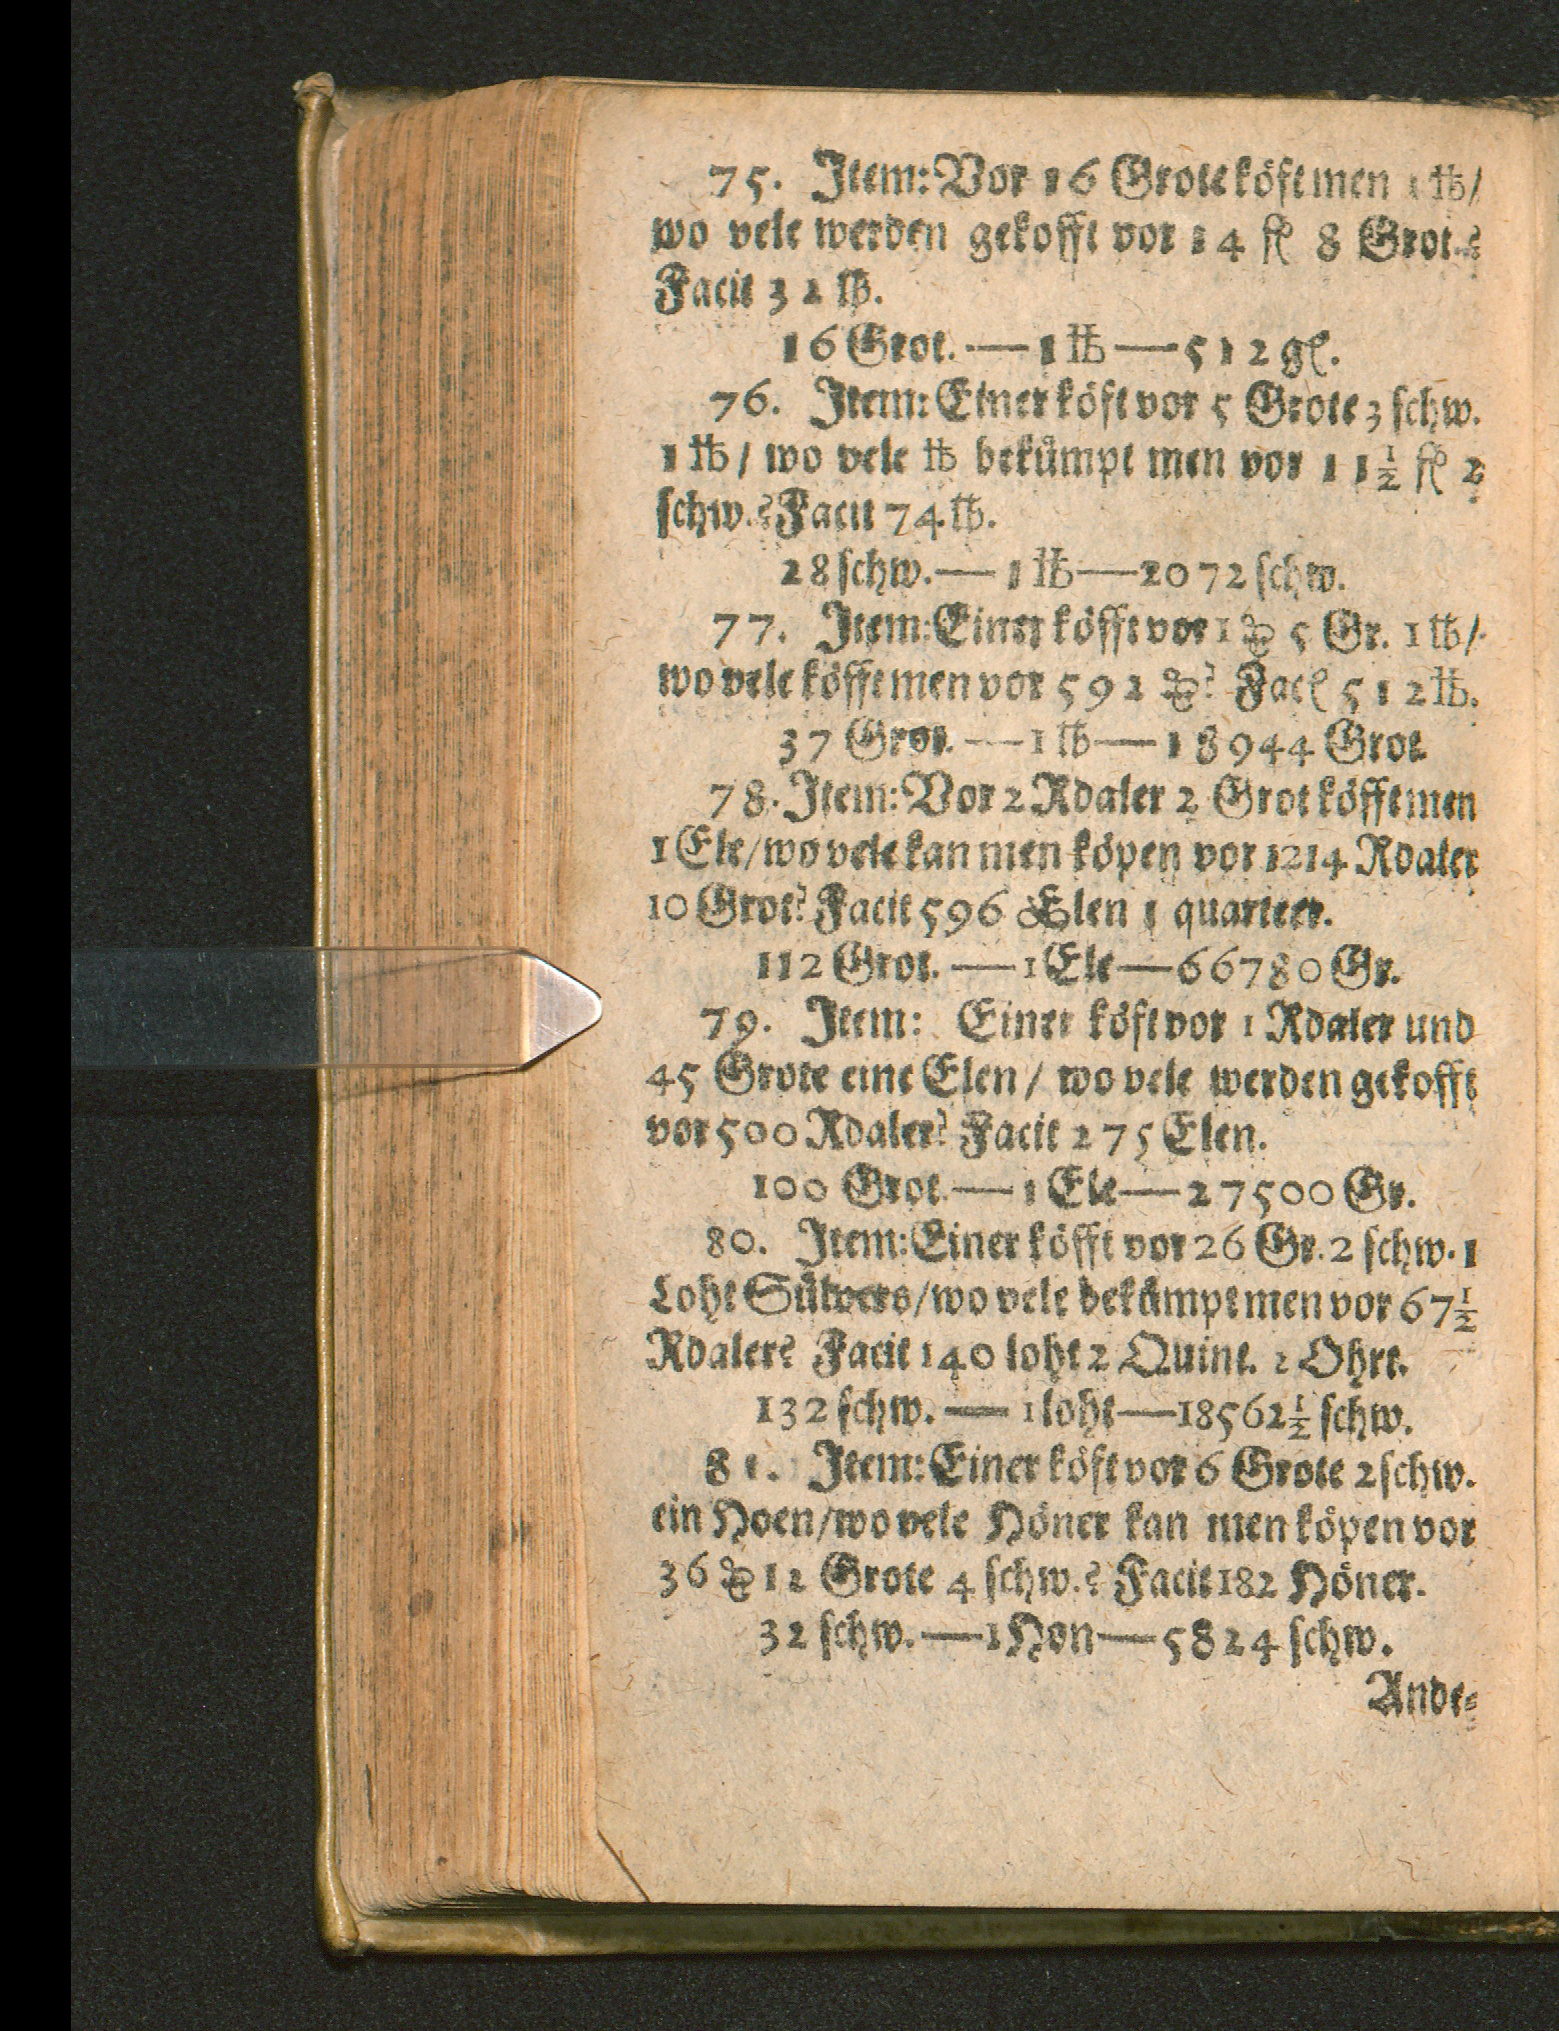 75. Item: Vor 16 Grote köft men 1 ℔/
wo vele werden gekofft vor 14 fl 8 Grot.?
Facit 32 ℔.
16 Grot. — 1 ℔ — 512 gl.
76. Item: Einer köft vor 5 Grote 3 schw.
1 ℔ / wo vele ℔ bekümpt men vor 11½ fl 2
schw.? Facit 74 ℔.
28 schw. — 1 ℔ — 2072 schw.
77. Item: Einer köfft vor 1 5 Gr. 1 ℔/
wo vele köfft men vor 592 ? Facl 512 ℔.
37 Grot. — 1 ℔ — 18944 Grot
78. Item: Vor 2 Rdaler 2 Grot köfft men
1 Ele/ wo vele kan men köpen vor 1214 Rdaler
10 Grot? Facit 596 Elen 1 quarteer.
112 Grot. — 1 Ele — 66780 Gr.
79. Item: Einer köft vor 1 Rdaler und
45 Grote eine Elen / wo vele werden gekofft
vor 500 Rdaler? Facit 275 Elen.
100 Grot — 1 Ele — 27500 Gr.
80. Item: Einer köfft vor 26 Gr. 2 schw. 1
Loht Sülvers/ wo vele bekümpt men vor 67½
Rdaler? Facit 140 loht 2 Quint. 2 Ohrt.
132 schw. — 1 loht — 18562½ schw.
81. Item: Einer köft vor 6 Grote 2 schw.
ein Hoen/ wo vele Höner kan men köpen vor
36 12 Grote 4 schw.? Facit 182 Höner.
32 schw. — 1 Hon — 5824 schw.
Ande-